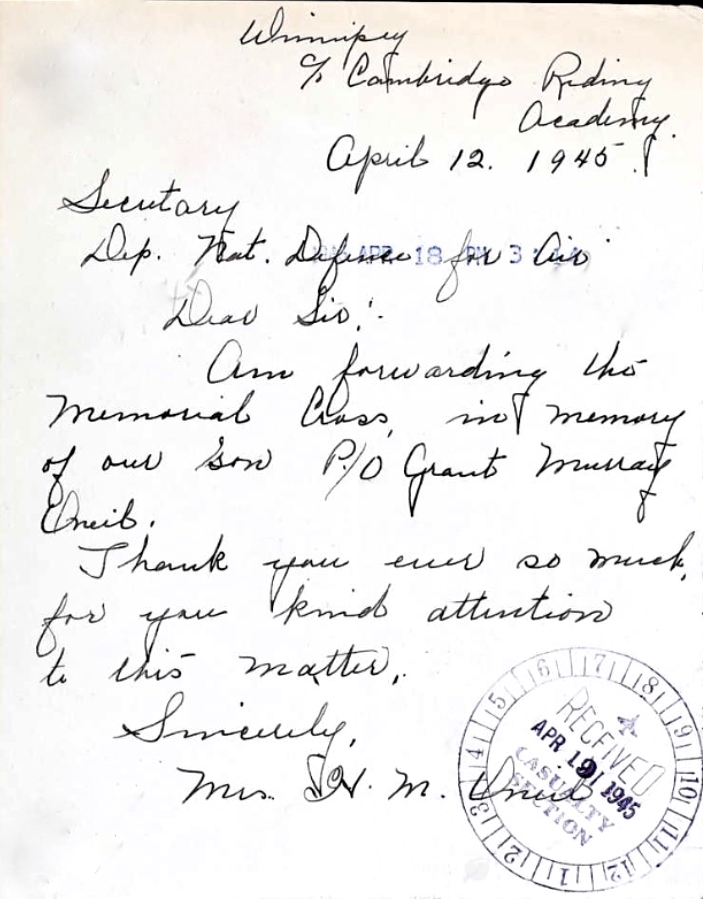 Winnipeg
c/o Cambridge Riding
Academy.
April 12. 1945.
Secretary
Dep. Nat. Defence for Air
APR 18 PM 3
Dear Sir:-
Am forwarding the
Memorial Cross, in memory
of our son P/O Grant Murray
Oneil.
Thank you ever so much,
for you kind attention
to this matter,.
Sincerely,
Mrs. W. M. Oneil
RECEIVED
APR 19 1945
CASUALTY
SECTION
1 2 3 4 5 6 7 8 9 10 11 12